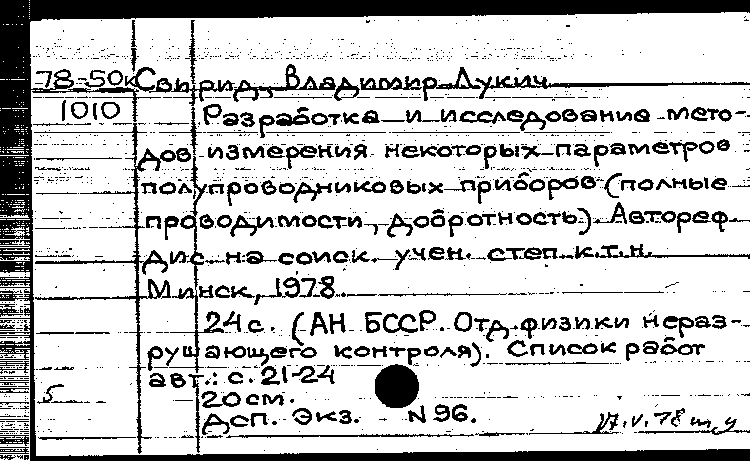 78-50к Свирид, Владимир Лукич
1010 Разработка и исследование мето-
дов измерения некоторых параметров
полупроводниковых приборов (полные
проводимости, добротность). Автореф.
дис. на соиск. учен. степ. к.т.н.
Минск, 1978.
24с. (АН БССР. Отд. физики нераз-
рушающего контроля). Список работ
авт.: с. 21-24
5 20см.
ДСП. Экз. N 96. 17.V.78